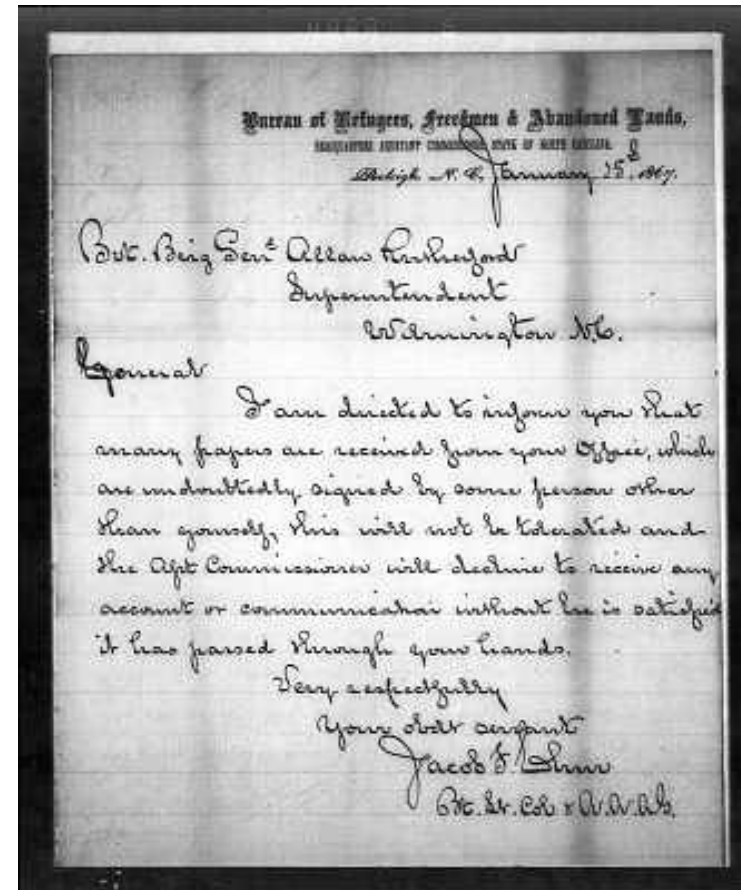 Bureau of Refugees, Freedmen & Abandoned Lands,
HEADQUARTERS ASSISTANT COMMISSIONER, STATE OF NORTH CAROLINA.
Raleigh N. C., January 25th, 1867.
Bvt. Brig Genl Allan Rutherford
Superintendent
Wilmington N.C.
General
I am directed to inform you that
many papers are received from your Office, which
are undoubtedly signed by some person other
than yourself, this will not be tolerated and
the Asst Commissioner will decline to receive any
account or communication without he is satisfied
it has passed through your hands.
Very respectfully
Your obdt servant
Jacob F.
Bt. Lt. Col & A.A.A.G.